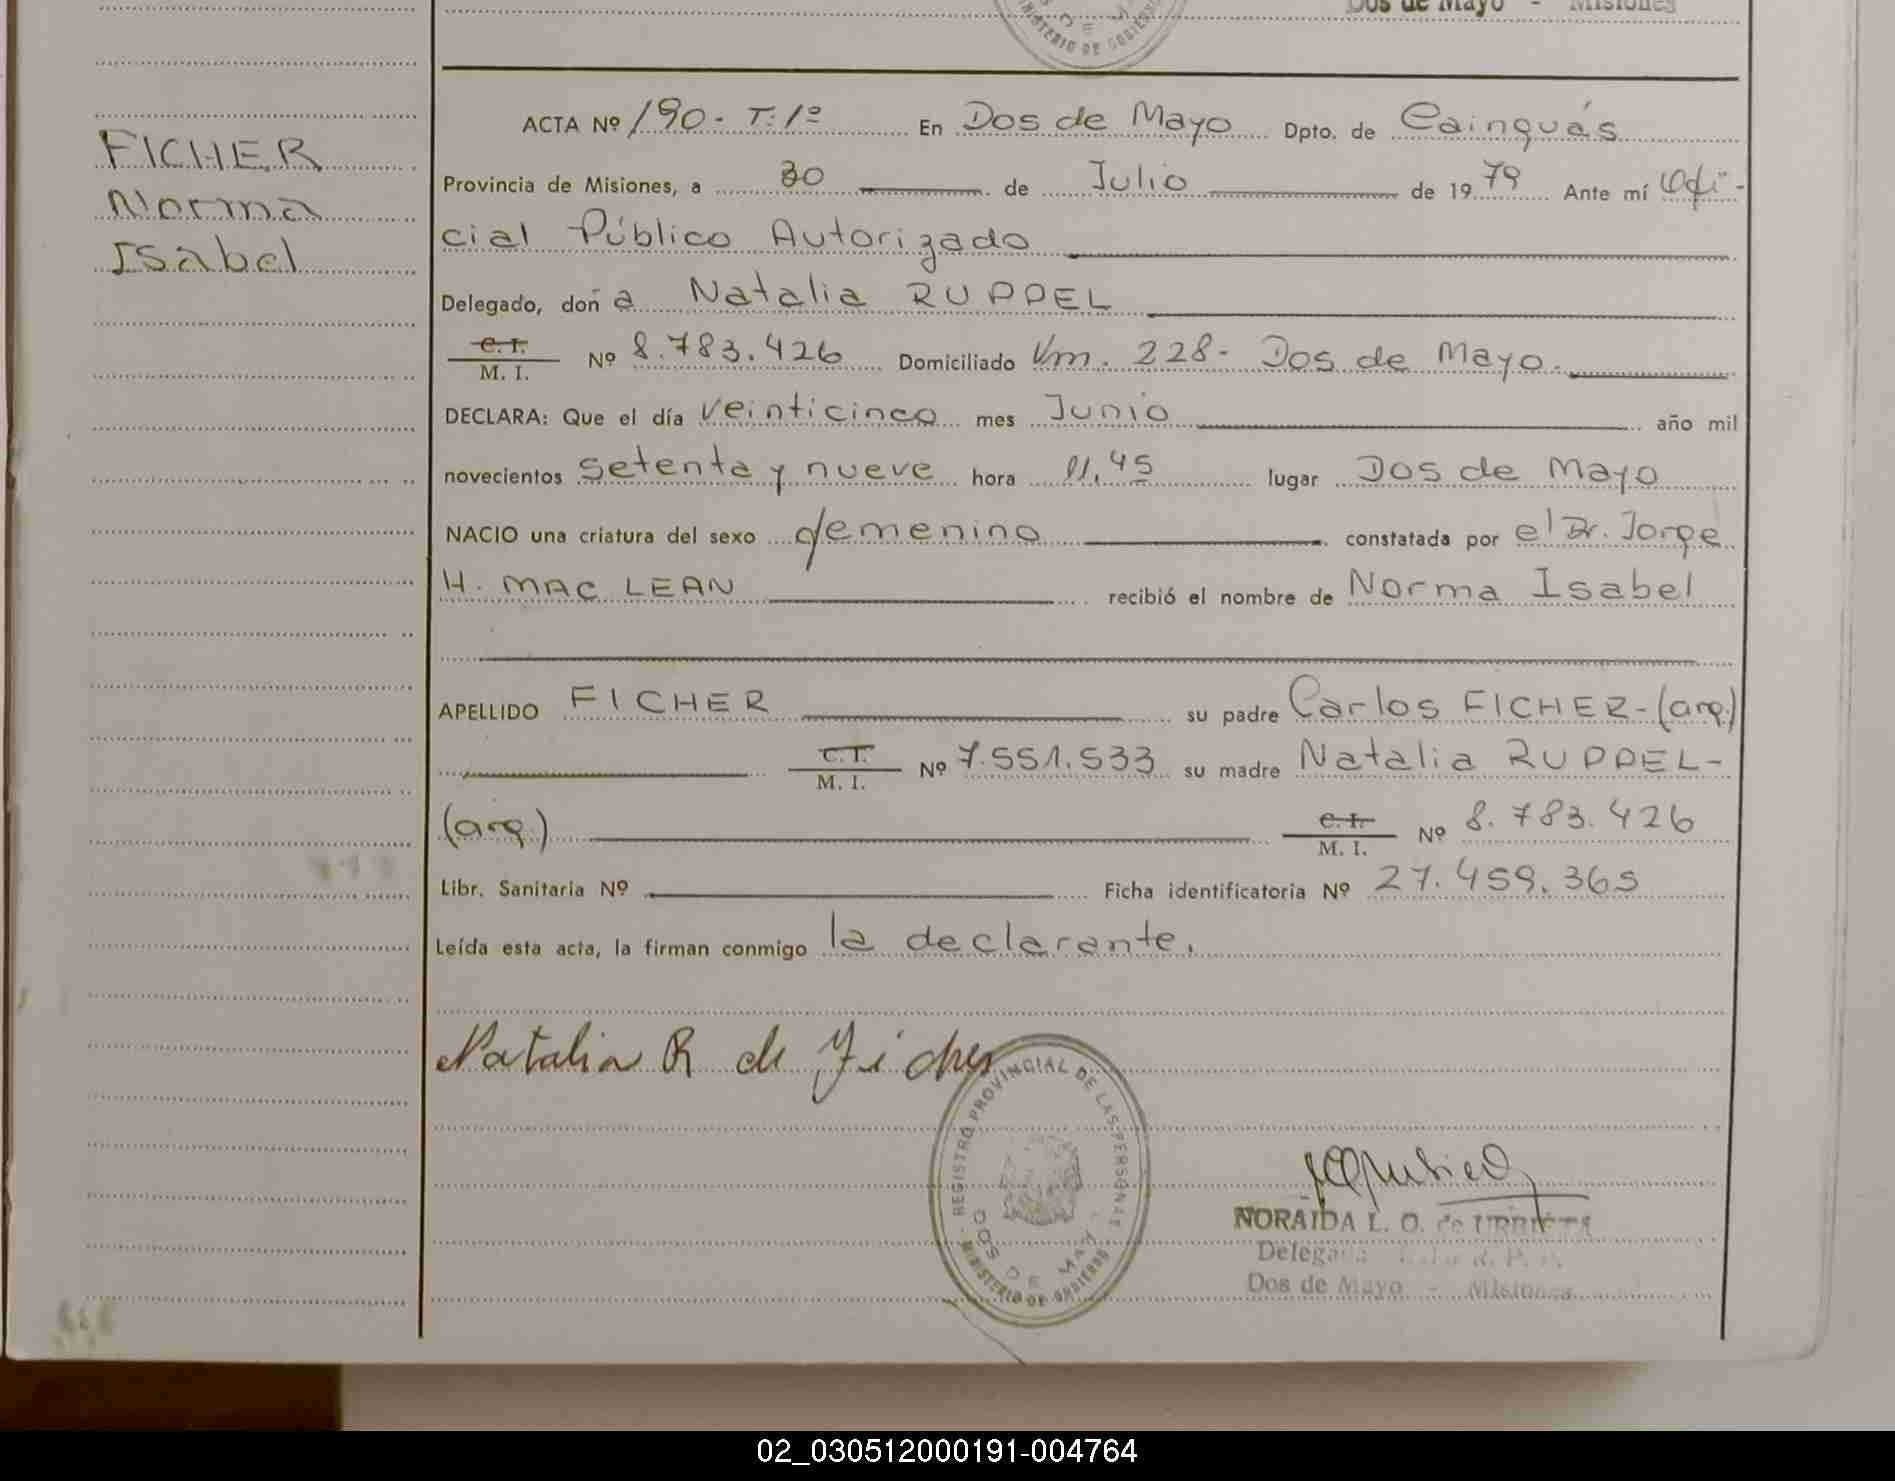 Dos de Mayo - Misiones
MINISTERIO DE GOBIERNO
ACTA Nº 190- T: 1º En Dos de Mayo Dpto. de Cainguás
FICHER
Provincia de Misiones, a 30 de Julio de 19 79 Ante mí Ofi-
Norma
cial Público Autorizado
Isabel
Delegado, doña Natalia RUPPEL
C. I.
M. I. Nº 8.783.426 Domiciliado Km. 228- Dos de Mayo.
DECLARA: Que el día veinticinco mes Junio año mil
novecientos setenta y nueve hora 11,45 lugar Dos de Mayo
NACIO una criatura del sexo femenino constatada por el Dr. Jorge
H. MAC LEAN recibió el nombre de Norma Isabel
APELLIDO FICHER su padre Carlos FICHER-(arg.)
C. I.
M. I. Nº 7.551.533 su madre Natalia RUPPEL-
(arg.) C. I.
M. I. Nº 8.783.426
Libr. Sanitaria Nº Ficha identificatoria Nº 27.459.365
Leída esta acta, la firman conmigo la declarante.
Natalia R de Ficher
REGISTRO PROVINCIAL DE LAS PERSONAS
DOS DE MAYO
MINISTERIO DE GOBIERNO
NORAIDA L. O. de
Delegada R. P.
Dos de Mayo - Misiones
02_030512000191-004764